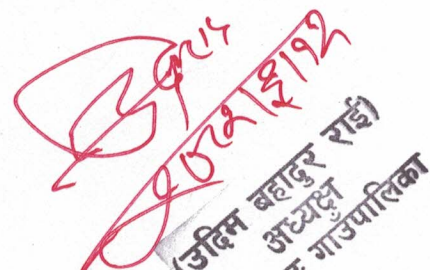 २०८२|६|१२
(उदिम बहादुर राई)
अध्यक्ष
गाउँपालिका